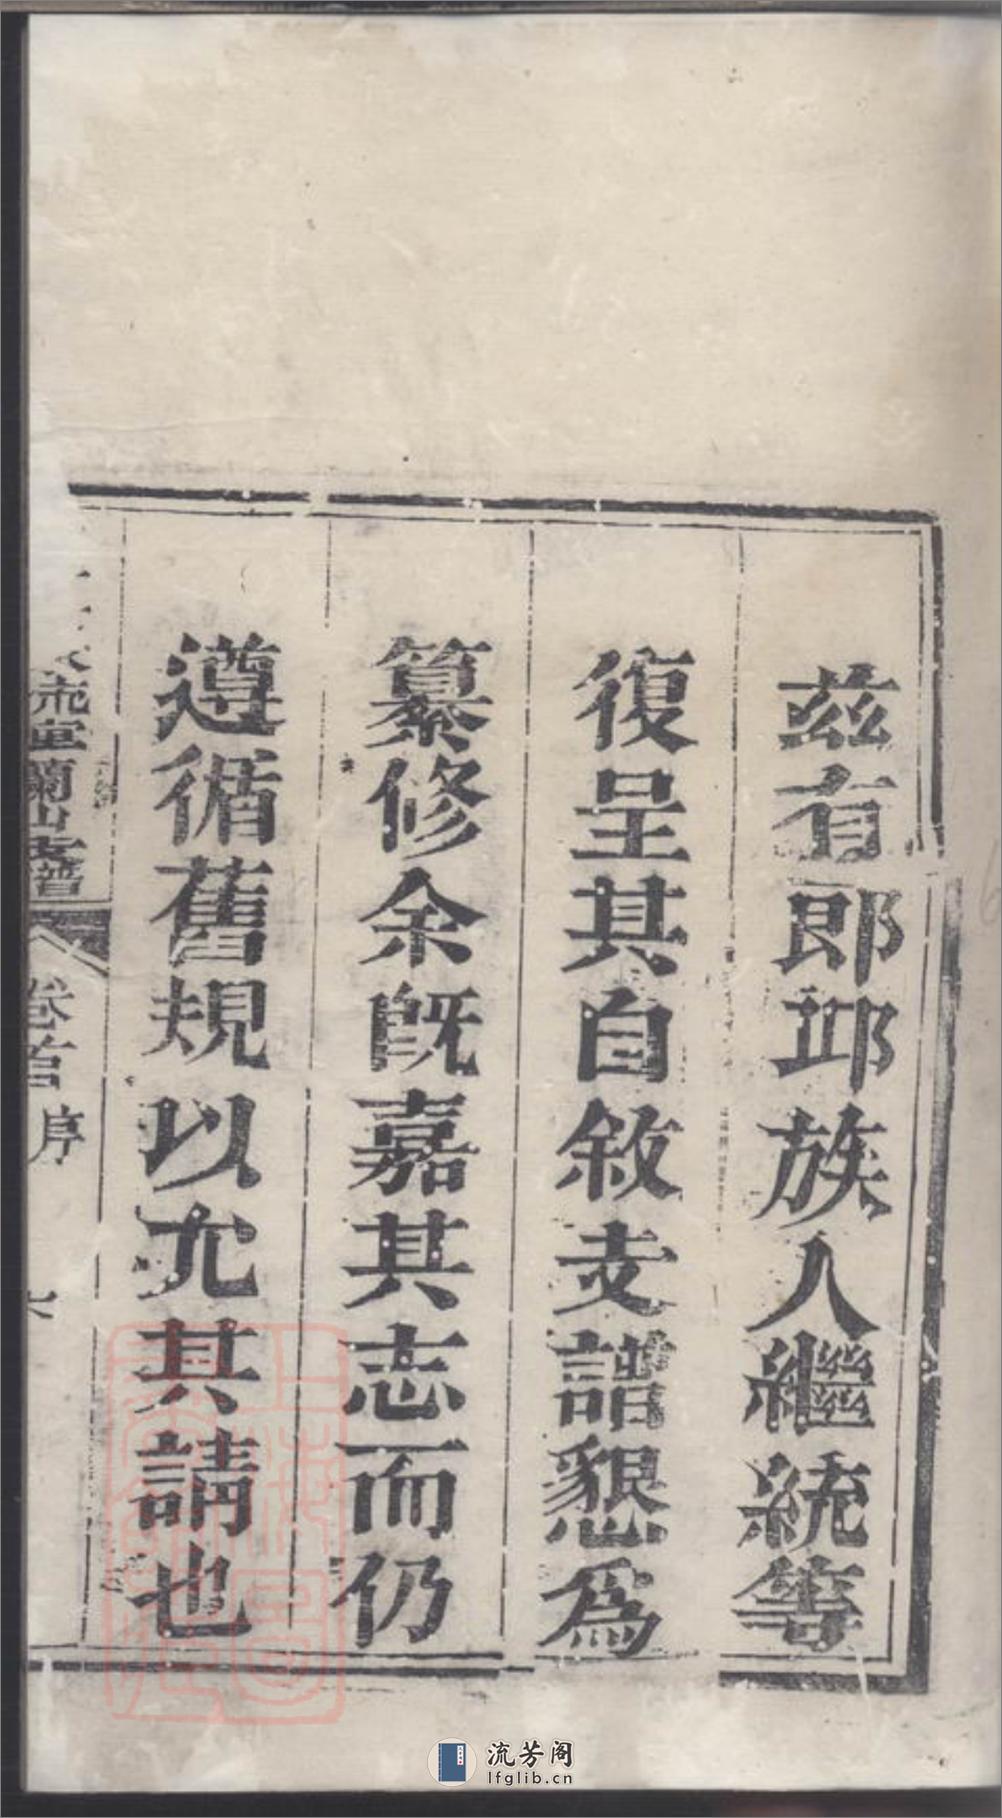 茲有郎邱族人繼統等
復呈其自敘支譜懇爲
纂修余旣嘉其志而仍
遵循舊規以允其請也
流宜蘭山支譜
卷首
序
流芳阁
lfglib.cn